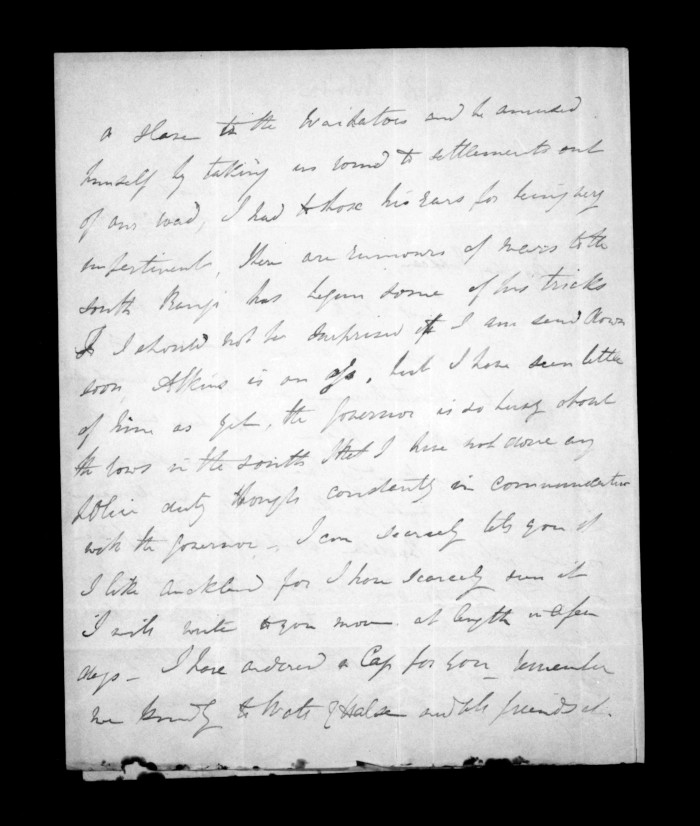 a slave to the Waikatoes and he amused
himself by taking us round to settlements out
of our road, I had to box his ears for being very
impertinent, There are rumours of rows to the
south Rangi has begun some of his tricks
& I should not be surprised if I am send down
soon, Atkins is an ass, but I have seen little
of him as yet, the Governor is so busy about
the rows in the south that I have not done any
police duty though constantly in communication
with the Governor – I can scarcely tell you if
I like Auckland for I have scarcely seen it
I will write to you more at length in a few
days – I have ordered a Cap for you – remember
me kindly to Watt & Halse and all friends at.